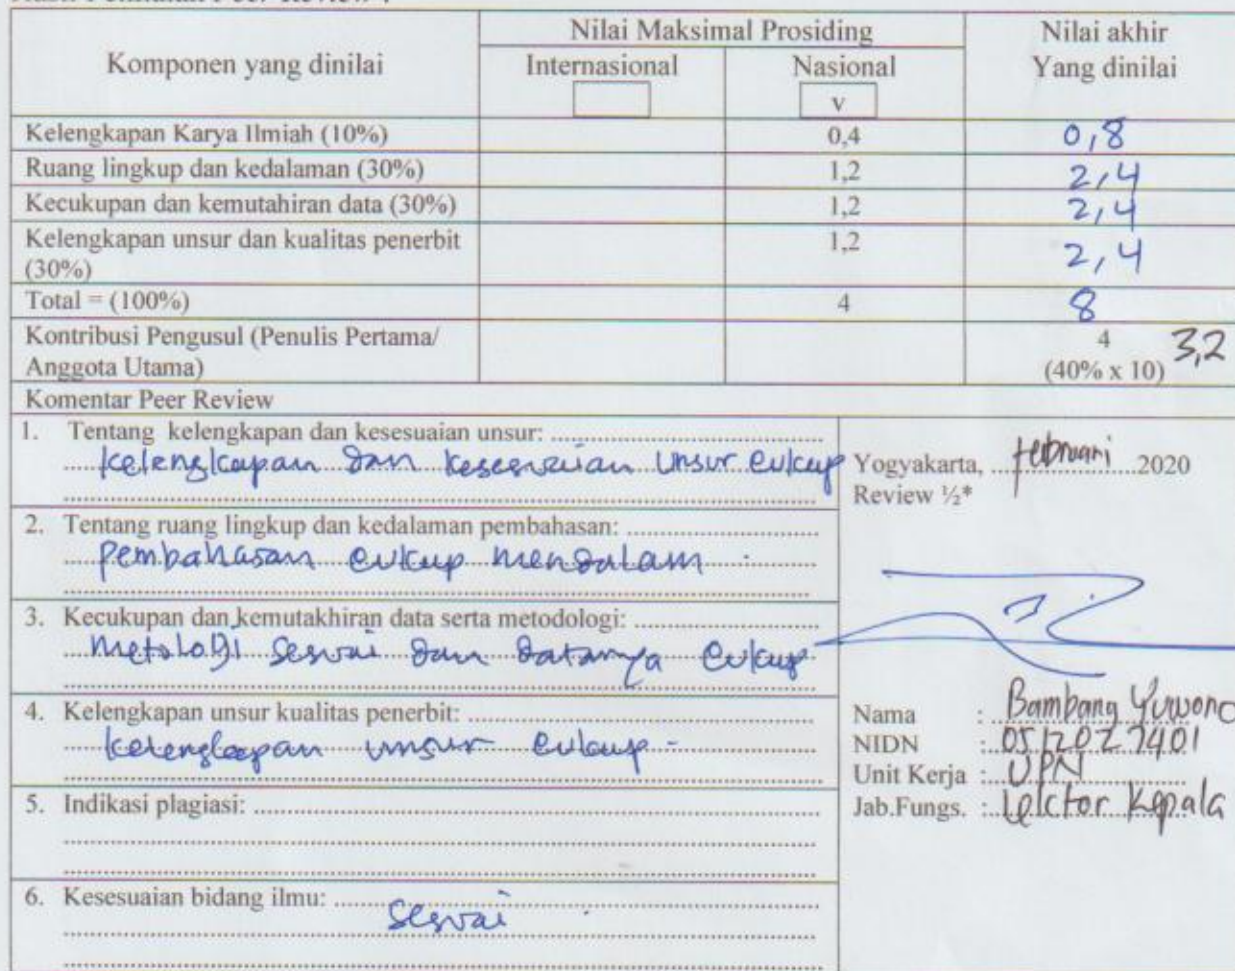 Komponen yang dinilai
Nilai Maksimal Prosiding
Nilai akhir
Yang dinilai
Internasional
Nasional
v
Kelengkapan Karya Ilmiah (10%) 0,4 0,8
Ruang lingkup dan kedalaman (30%) 1,2 2,4
Kecukupan dan kemutahiran data (30%) 1,2 2,4
Kelengkapan unsur dan kualitas penerbit 1,2 2,4
(30%)
Total = (100%) 4 8
Kontribusi Pengusul (Penulis Pertama/ 4 3,2
Anggota Utama) (40% x 10)
Komentar Peer Review
1. Tentang kelengkapan dan kesesuaian unsur:
kelengkapan dan kesesuaian unsur cukup
2. Tentang ruang lingkup dan kedalaman pembahasan:
Pembahasan cukup mendalam.
3. Kecukupan dan kemutakhiran data serta metodologi:
Metologi sesuai dan datanya cukup
4. Kelengkapan unsur kualitas penerbit:
kelengkapan unsur cukup -
5. Indikasi plagiasi:
6. Kesesuaian bidang ilmu:
sesuai.
Yogyakarta, februari 2020
Review ½*
Nama : Bambang Yuwono
NIDN :
Unit Kerja : UPN
Jab.Fungs. : Lektor Kepala